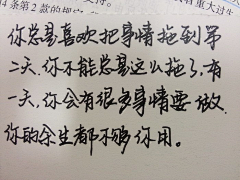 4条第2款的规定
重大过失
你总是喜欢把事情拖到第
二天.你不能总是这么拖了,有
一天,你会有很多事情要做.
你的余生都不够你用。